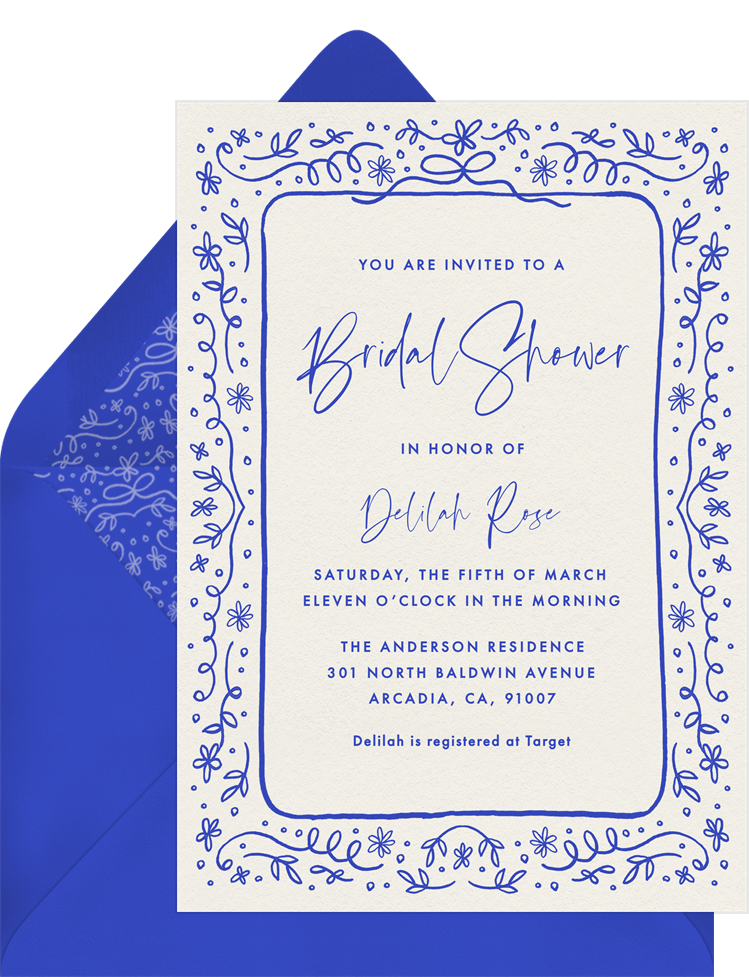 YOU ARE INVITED TO A
Bridal Shower
IN HONOR OF
Delilah Rose
SATURDAY, THE FIFTH OF MARCH
ELEVEN O’CLOCK IN THE MORNING
THE ANDERSON RESIDENCE
301 NORTH BALDWIN AVENUE
ARCADIA, CA, 91007
Delilah is registered at Target